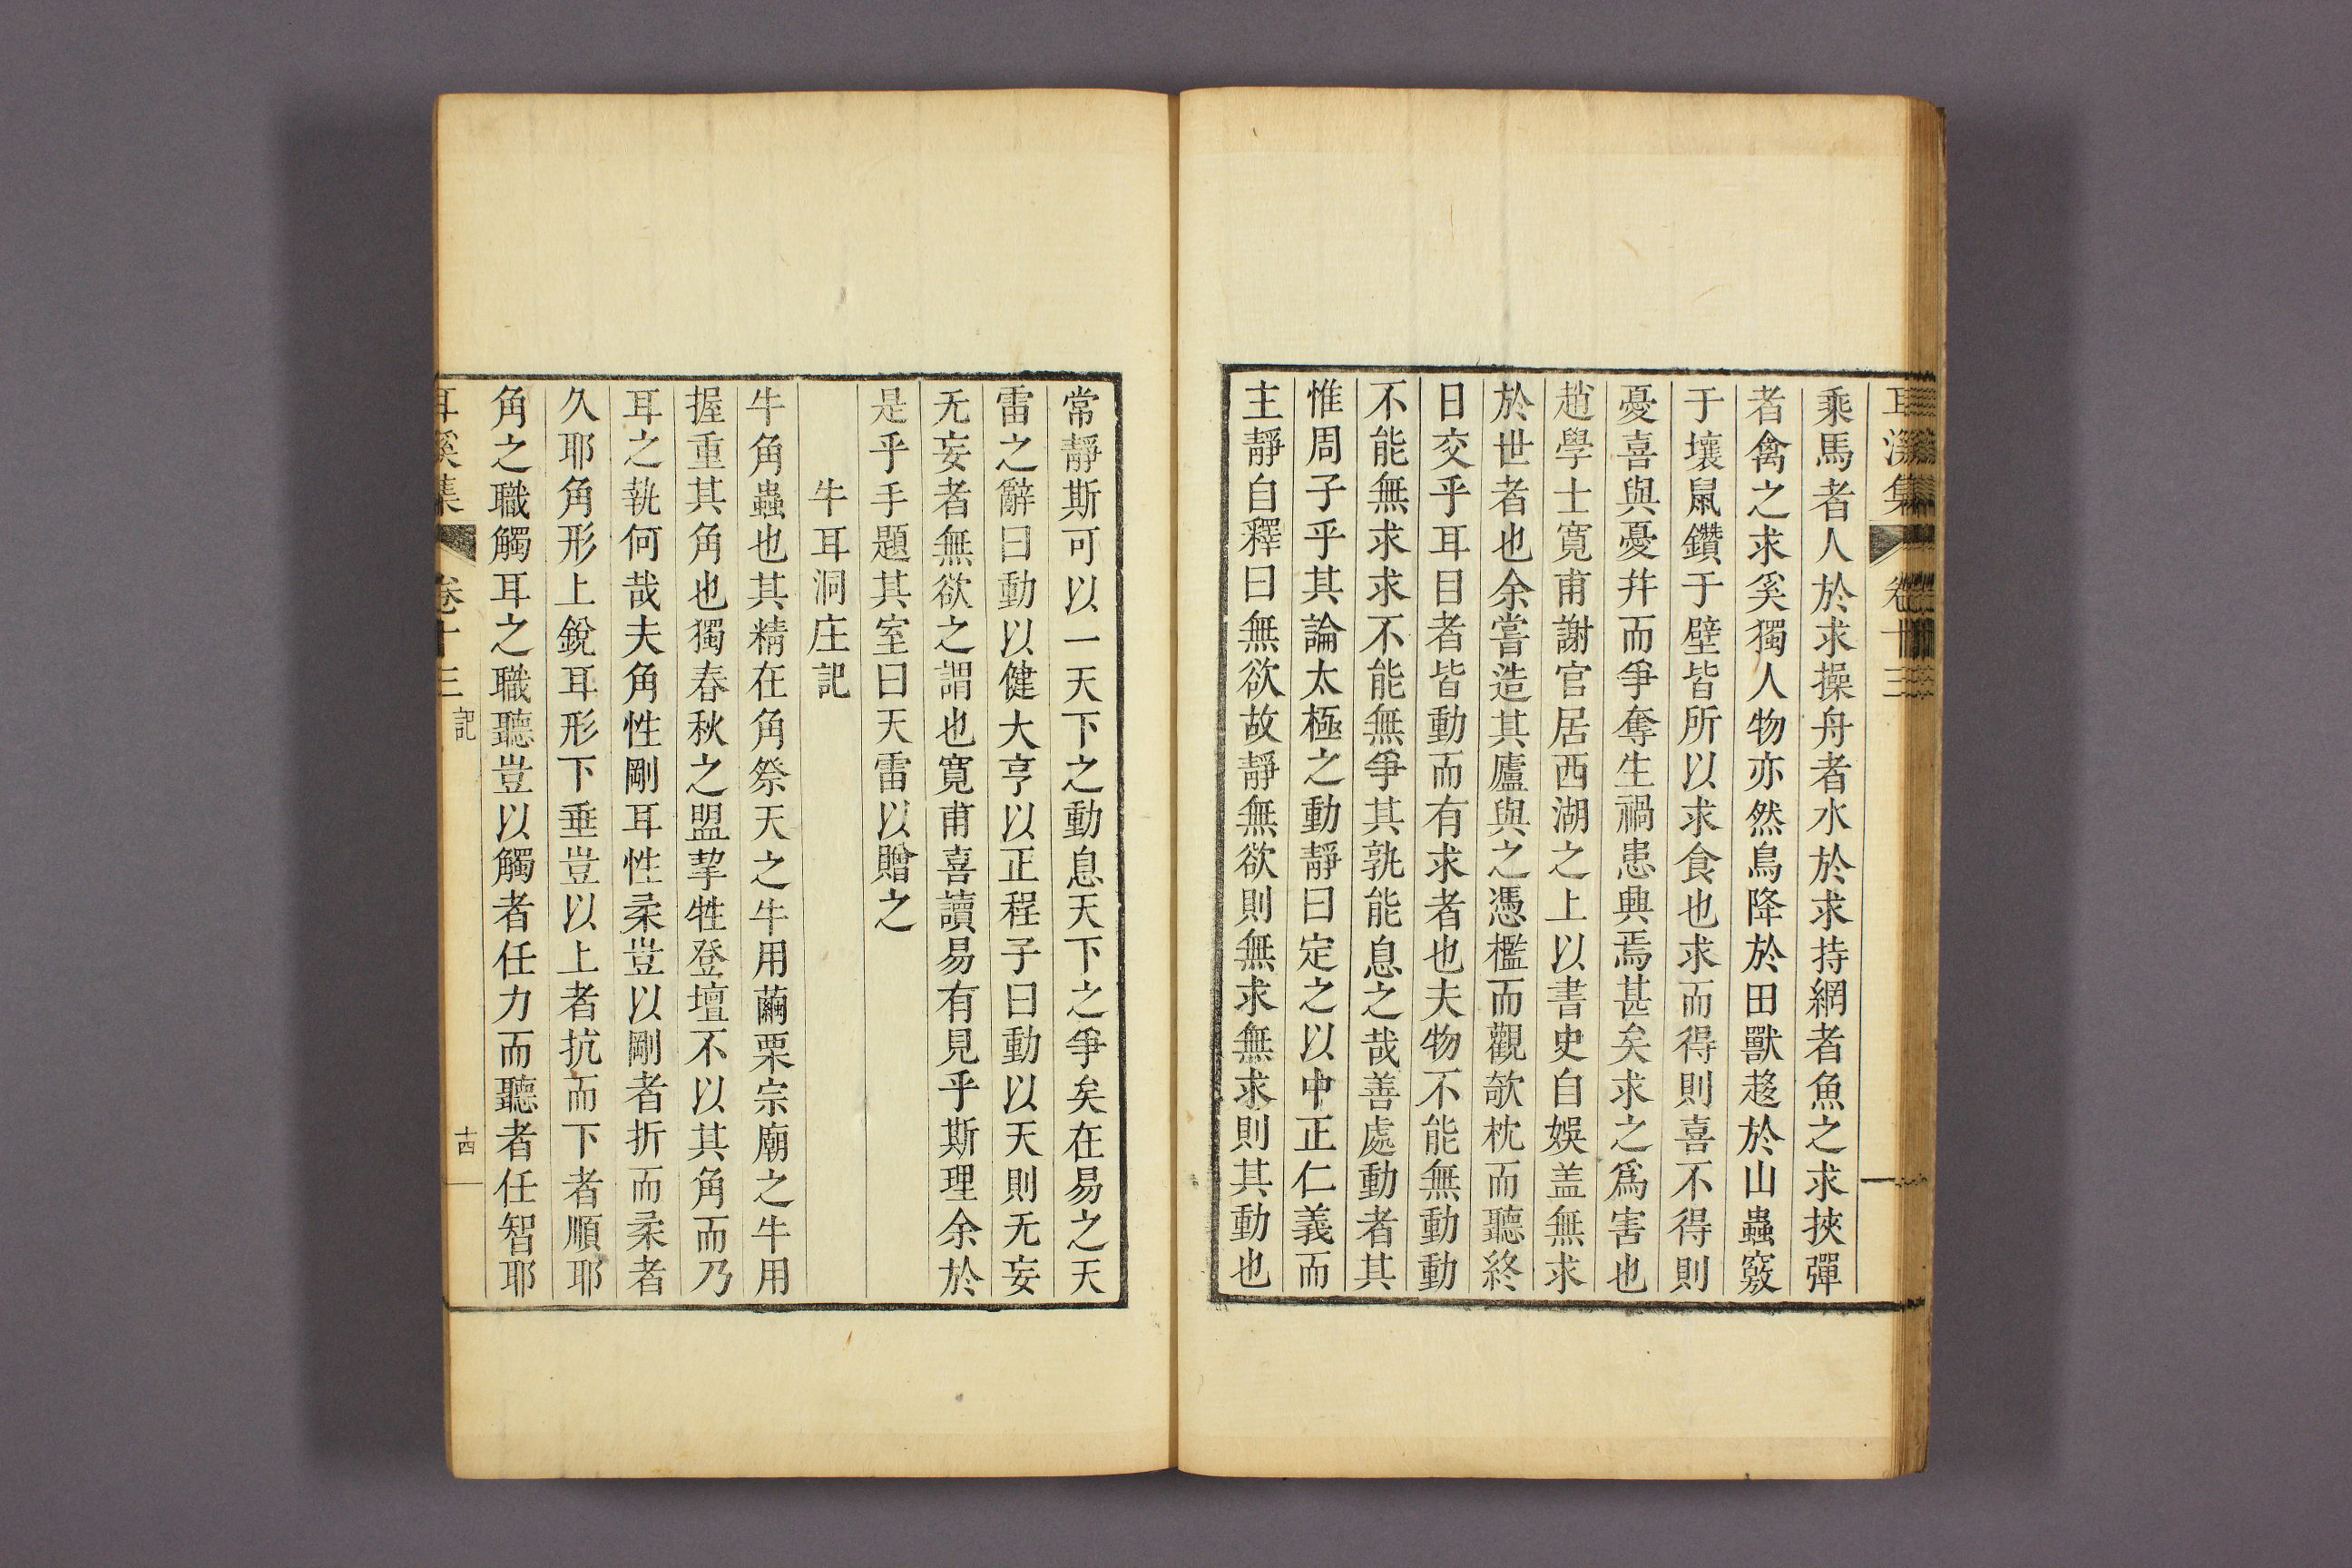 耳溪集 卷十三
乘馬者人於求操舟者水於求持網者魚之求挾彈
者禽之求奚獨人物亦然鳥降於田獸趍於山蟲竅
于壤鼠鑽于壁皆所以求食也求而得則喜不得則
憂喜與憂幷而爭奪生禍患興焉甚矣求之爲害也
趙學士寬甫謝官居西湖之上以書史自娛盖無求
於世者也余嘗造其廬與之憑檻而觀欹枕而聽終
日交乎耳目者皆動而有求者也夫物不能無動動
不能無求求不能無爭其孰能息之哉善處動者其
惟周子乎其論太極之動靜曰定之以中正仁義而
主靜自釋曰無欲故靜無欲則無求無求則其動也
常靜斯可以一天下之動息天下之爭矣在易之天
雷之辭曰動以健大亨以正程子曰動以天則无妄
无妄者無欲之謂也寬甫喜讀易有見乎斯理余於
是乎手題其室曰天雷以贈之
牛耳洞庄記
牛角蟲也其精在角祭天之牛用繭栗宗廟之牛用
握重其角也獨春秋之盟挈牲登壇不以其角而乃
耳之執何哉夫角性剛耳性柔豈以剛者折而柔者
久耶角形上銳耳形下垂豈以上者抗而下者順耶
角之職觸耳之職聽豈以觸者任力而聽者任智耶
耳溪集 卷十三 記 十四